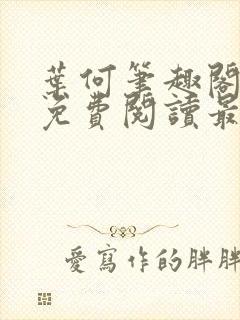 葉何筆趣閣
免費閱讀最
愛寫作的胖胖